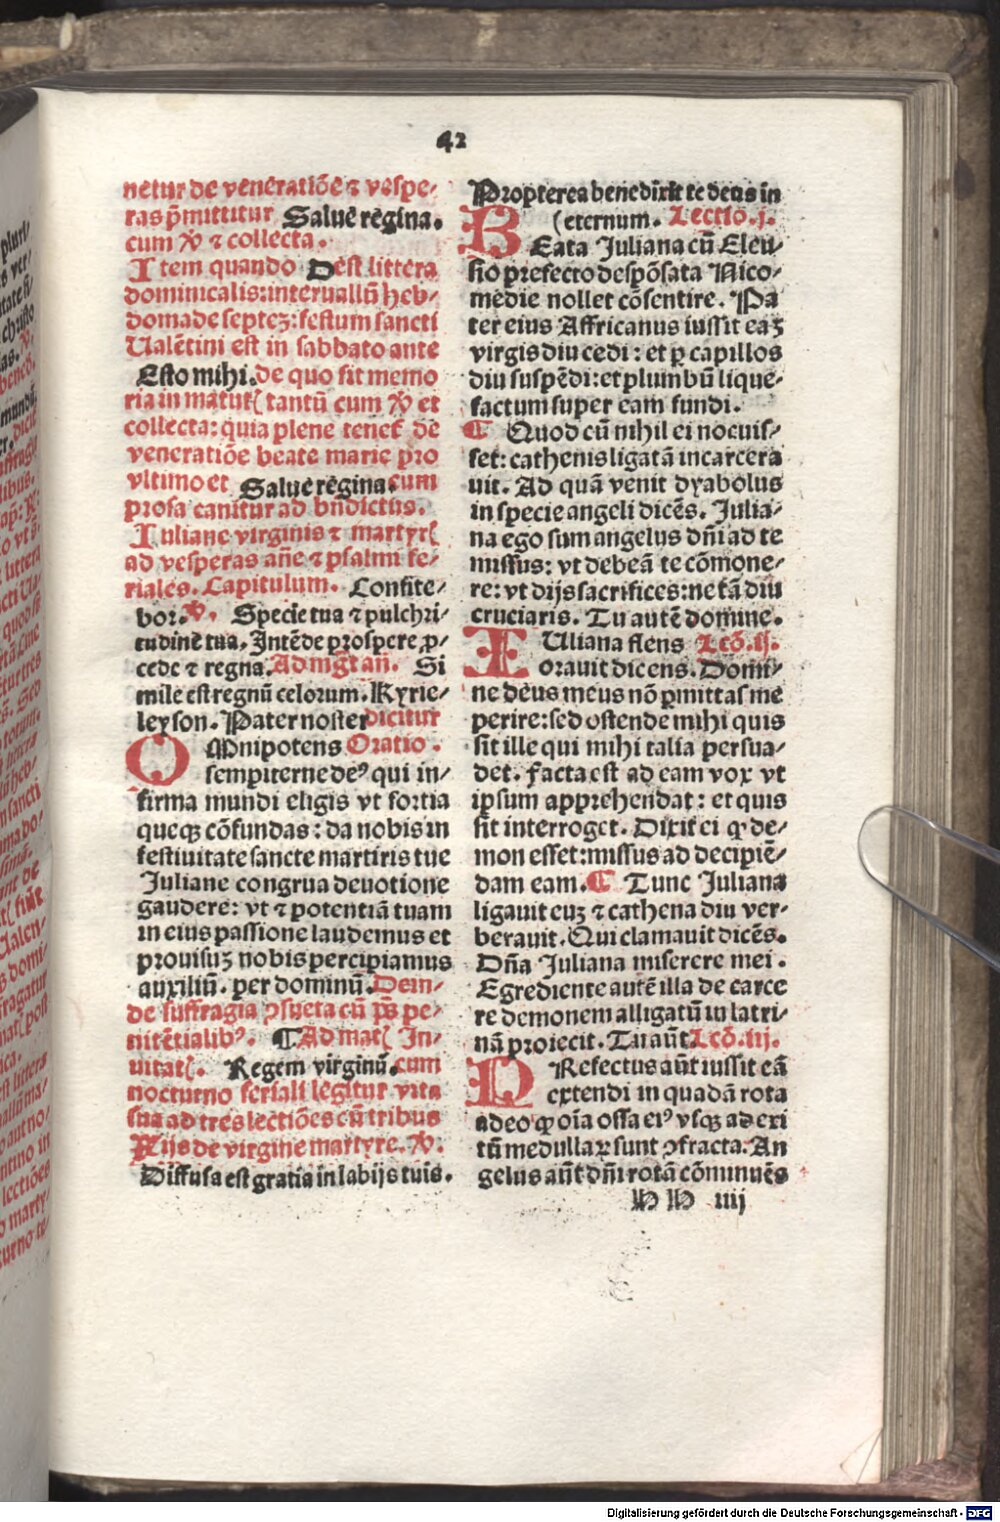 42
netur de veneratiōe ⁊ vespe-
ras p̄mittitur Salue regina.
cum ꝟ ⁊ collecta.
Item quando D est littera
dominicalis: interuallū heb-
domade septeʒ: festum sancti
Ualētini est in sabbato ante
Esto mihi. de quo fit memo
ria in matut᷑ tantū cum ꝟ et
collecta: quia plene tenet᷑ de
veneratiōe beate marie pro
vltimo et Salue regina cum
prosa canitur ad bn̄dictus.
Iuliane virginis ⁊ martyr᷑
ad vesperas añe ⁊ psalmi fe-
riales. Capitulum. Confite-
bor. ꝟ. Specie tua ⁊ pulchri-
tudine tua. Intēde prospere ꝓ-
cede ⁊ regna. Ad mgr̄t añ. Si
mile est regnū celorum. Kyrie-
leyson. Pater noster dicitur
OMnipotens Oratio.
sempiterne deꝰ qui in-
firma mundi eligis vt fortia
queqꝫ cōfundas: da nobis in
festiuitate sancte martiris tue
Juliane congrua deuotione
gaudere: vt ⁊ potentiā tuam
in eius passione laudemus et
prouisuʒ nobis percipiamus
auxiliū. per dominū. Dein-
de suffragia ꝯsueta cū p̄s pe-
nitētialibꝰ. ¶ Ad mat᷑ In-
uitat᷑. Regem virginū. cum
nocturno feriali legitur vita
sua ad tres lectiōes cū tribus
Rijs de virgine martyre. ꝟ.
Diffusa est gratia in labijs tuis.
Propterea benedixit te deus in
(eternum. Lectio. j.
BEata Juliana cū Eleu-
sio prefecto despōsata Nico-
medie nollet cōsentire. Pa
ter eius Affricanus iussit eaʒ
virgis diu cedi: et ꝑ capillos
diu suspēdi: et plumbū lique-
factum super eam fundi.
¶ Quod cū nihil ei nocuis-
set: cathenis ligatā incarcera
uit. Ad quā venit dyabolus
in specie angeli dicēs. Julia-
na ego sum angelus dn̄i ad te
missus: vt debeā te cōmone-
re: vt dijs sacrifices: ne tā diu
cruciaris. Tu autē domine.
IUliana flens Lcō. ij.
orauit dicens. Domi-
ne deus meus nō ꝑmittas me
perire: sed ostende mihi quis
sit ille qui mihi talia persua-
det. facta est ad eam vox vt
ipsum apprehendat: et quis
sit interroget. Dixit ei ꝙ de-
mon esset: missus ad decipiē-
dam eam. ¶ Tunc Juliana
ligauit euʒ ⁊ cathena diu ver-
berauit. Qui clamauit dicēs.
Dn̄a Juliana miserere mei.
Egrediente autē illa de carce
re demonem alligatū in latri-
nā proiecit. Tu aūt Lcō. iij.
PRefectus aūt iussit eā
extendi in quadā rota
adeo ꝙ oīa ossa eiꝰ vsqꝫ ad exi
tū medullaꝝ sunt ꝯfracta. An
gelus aūt dn̄i rotā cōminuēs
HH iiij
Digitalisierung gefördert durch die Deutsche Forschungsgemeinschaft - DFG